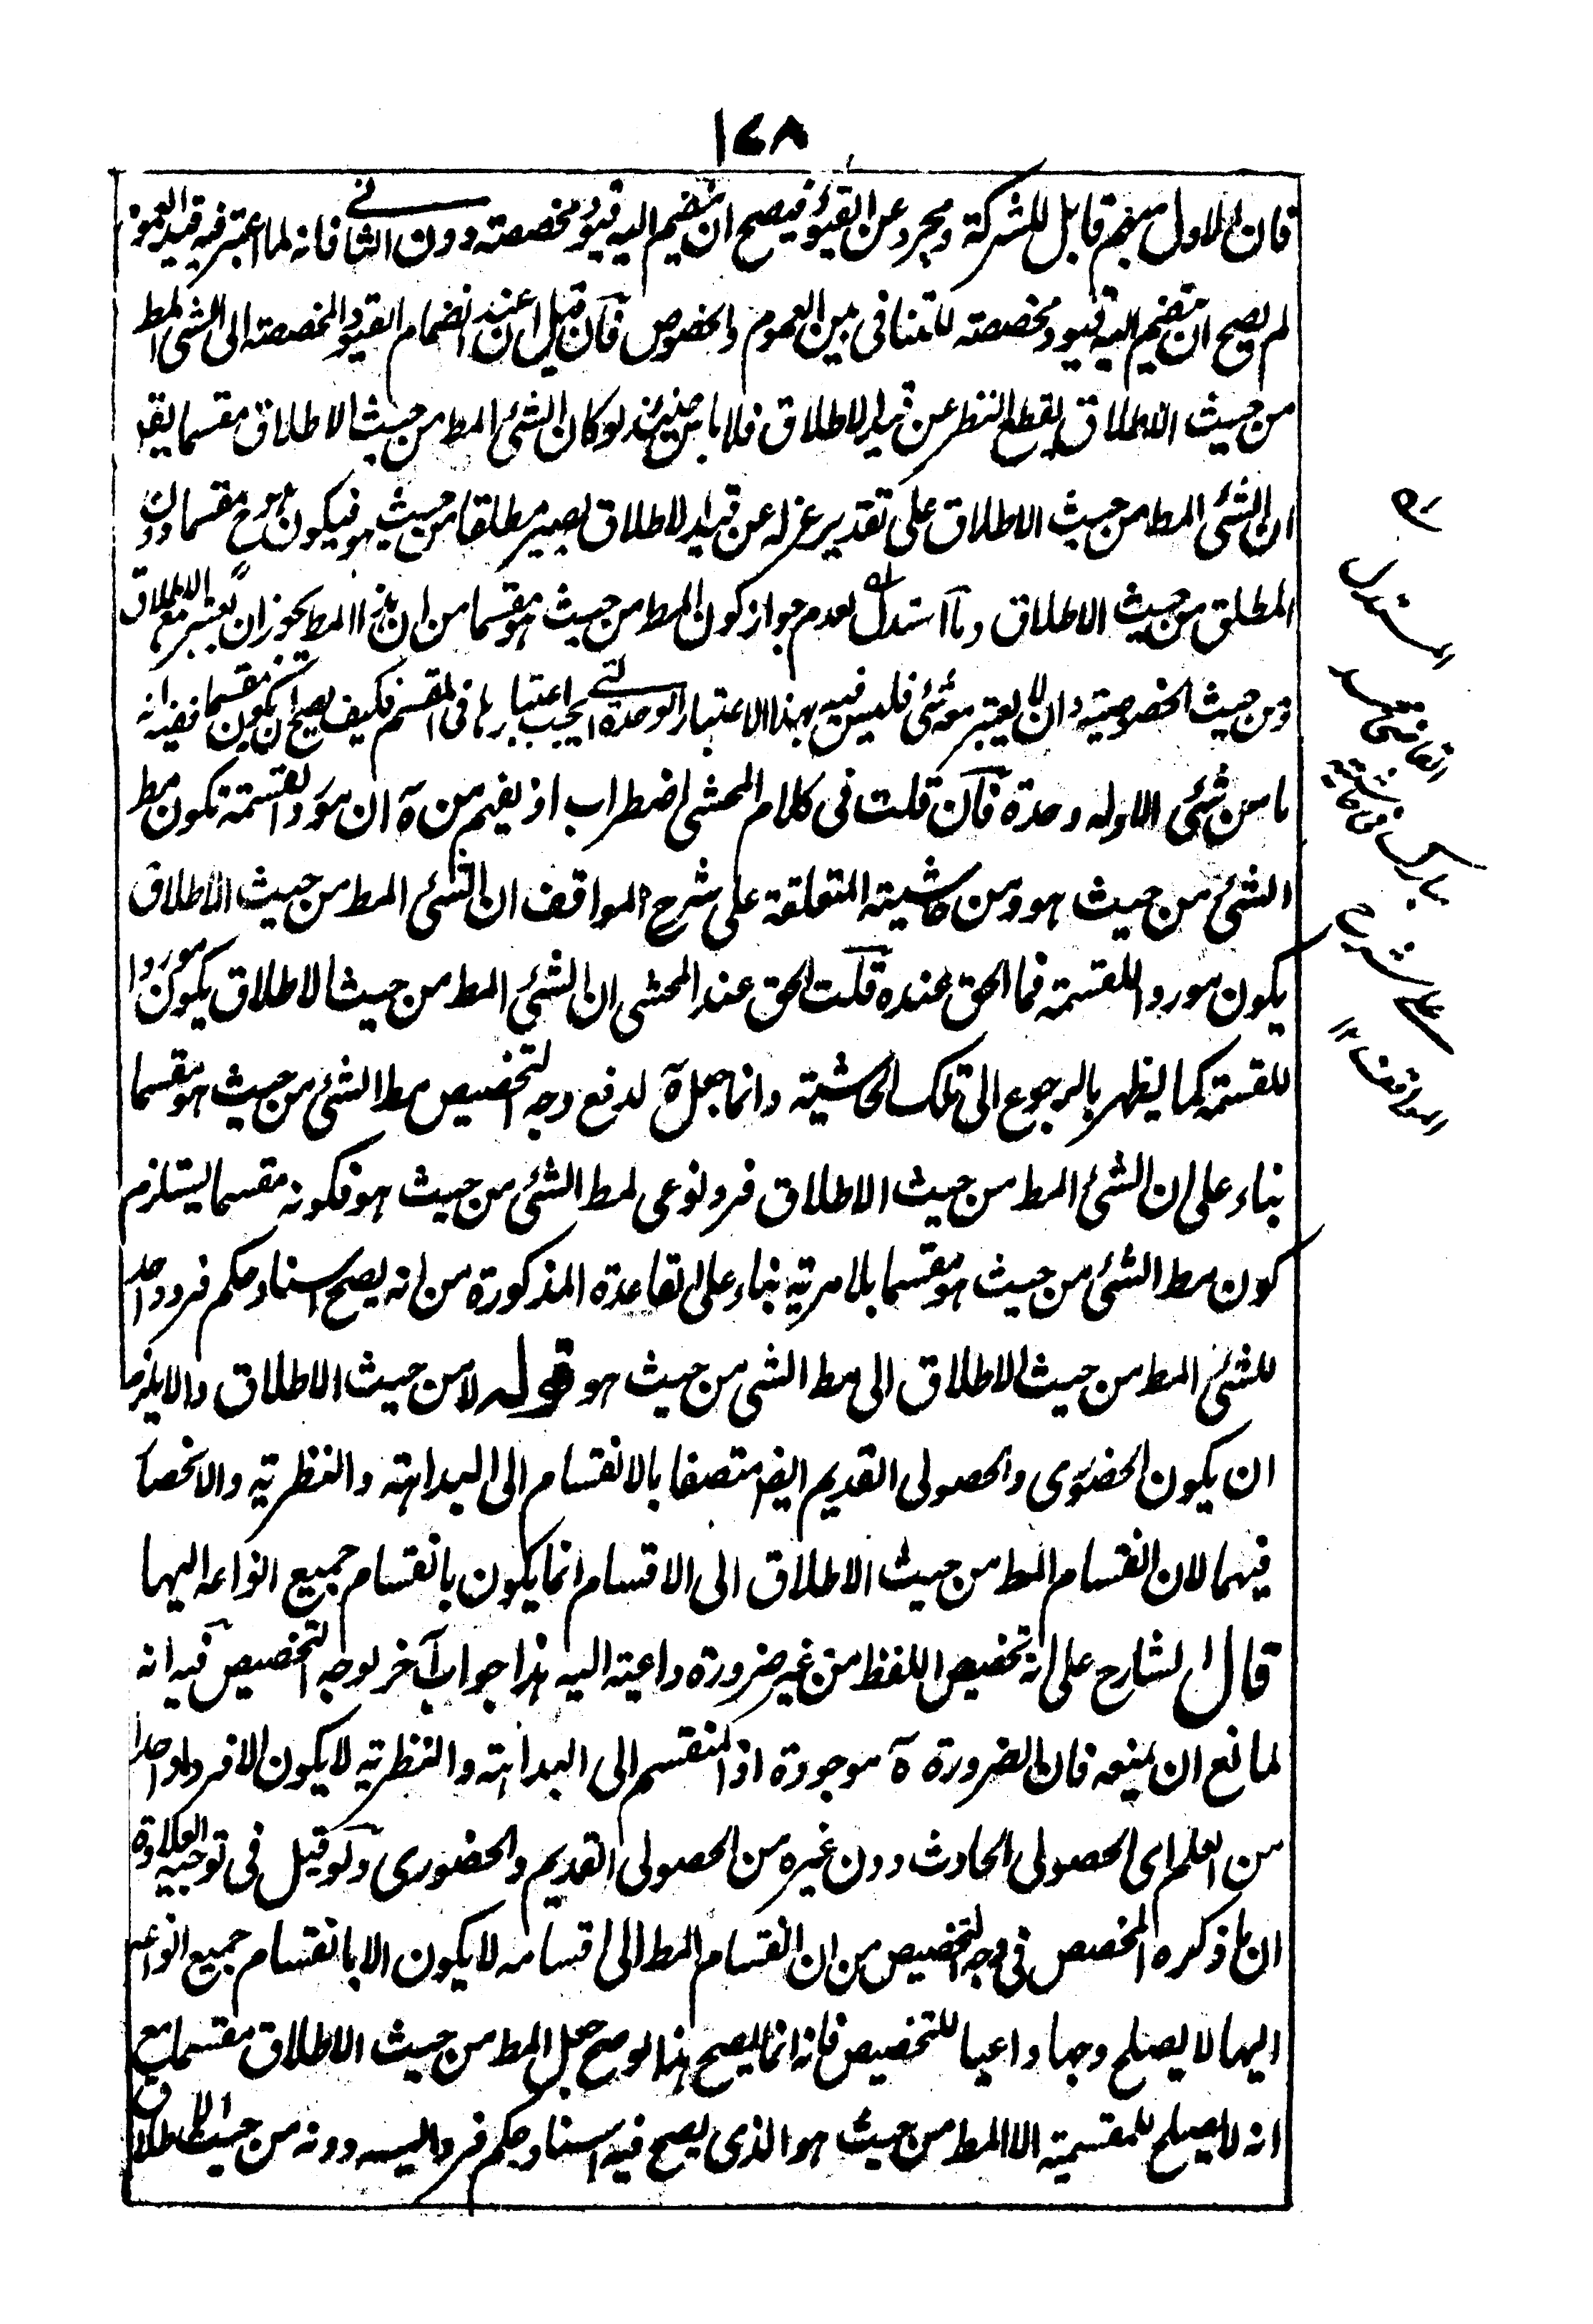 ١٧٨
فان الاول مبهم قابل للشركة ومجرد عن القيود فيصح ان ينضم اليه قيود مخصصته دون الثانى فانه لما اعتبر فيه قيد العموم
لم يصح ان ينضم اليه قيود مخصصته للتنافى بين العموم والخصوص فآن قيل ان عند انضمام القيود المخصصته الى الشى المط
من حيث الاطلاق يقطع النظر عن قيد الاطلاق فلا باس حينئذ لو كان الشئ المط من حيث الاطلاق مقسما يقر
ان الشئ المط من حيث الاطلاق على تقدير عزله عن قيد الاطلاق يصير مطلقا من حيث هو فيكون هو ح مقسما دون
المطلق من حيث الاطلاق وما استدل لعدم جواز كون المط من حيث هو مقسما من ان هذا المط يجوز ان يعتبر مع الاطلاق
ومن حيث الخصوصيته وان لا يعتبر معه شئ فليس فيه بهذا الاعتبار الوحدة التى يجب اعتبارها فى المقسم فكيف يصح ان يكون مقسما ففيه انه
ما من شئى الا وله وحدة فآن قلت فى كلام المحشى اضطراب اذ يفهم من آه ان مورد القسمته تكون مط
الشئ من حيث هو ومن حاشيته المتعلقة على شرح المواقف ان الشئ المط من حيث الاطلاق
يكون موردا للقسمته فما الحق عنده قلت الحق عند المحشى ان الشئ المط من حيث الاطلاق يكون موردا
للقسمته كما يظهر بالرجوع الى تلك الحاشيته وانما جعل آه لدفع وجه التخصيص مط الشئ من حيث هو مقسما
بناء على ان الشئ المط من حيث الاطلاق فرد نوعى لمط الشئ من حيث هو فكونه مقسما يستلزم
كون مط الشئ من حيث هو مقسما بلا مريته بناء على القاعدة المذكورة من انه يصح اسناد حكم فرد واحد
للشئ المط من حيث الاطلاق الى مط الشى من حيث هو قوله لا من حيث الاطلاق والا يلزم
ان يكون الحضورى والحصولى القديم ايضا متصفا بالانقسام الى البداهته والنظريته والانحصار
فيهما لان انقسام المط من حيث الاطلاق الى الاقسام انما يكون بانقسام جميع انواعه اليها
قال الشارح على انه تخصيص اللفظ من غير ضرورة داعيته اليه هذا جواب آخر لوجه التخصيص فيه انه
لمانع ان يمنعه فان الضرورة ه موجودة اذ المنقسم الى البداهته والنظريته لا يكون الا فردا واحدا
من العلم اى الحصولى الحادث دون غيره من الحصولى القديم والحضورى ولو قيل فى توجيه العلاوة
ان ما ذكره المخصص فى وجه التخصيص من ان انقسام المط الى اقسامه لا يكون الا بانقسام جميع انواعه
اليها لا يصلح وجها داعيا للتخصيص فانه انما يصح هذا لو صح جعل المط من حيث الاطلاق مقسما مع
انه لا يصلح للمقسميته الا المط من حيث هو الذى يصح فيه اسناد حكم فرد اليه دونه من حيث الاطلاق
المستدل
القاضى
مبارك فى حاشيته
على شرح
المواقف ١٢